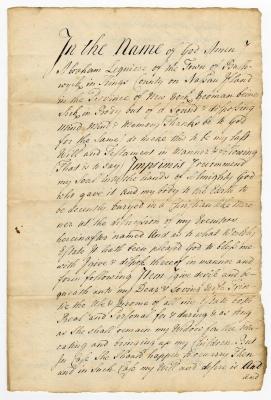 In the Name of God Amen I
Abraham Lequiere of the Town of Bush-
wyck in Kings County on Nasau Island
in the Province of New York Yeoman being
Sick in Body but of a Sound & disposing
Mind & Memory Thanks be to God
for the Same, do make this to be my last
Will and Testament in Manner & following
That is to say Imprimis I recommend
my Soul into the hands of Almighty God
who gave it and my body to the Earth to
be decently buryed in a Christian like Man-
ner at the discretion of my Executors
hereinafter named And as to what Worldly
Estate it hath been pleased God to bless me
with I give & dispose thereof in manner and
form following Item I give devise and be-
queath unto my Dear & Loving Wife
the Use & Income of all my Estate both
Real and Personal for & during so long
as She shall remain my Widow for the edu-
cating and bringing up my Children But
in Case She Should happen to marry Then
and in Such Case my Will and desire is And
and